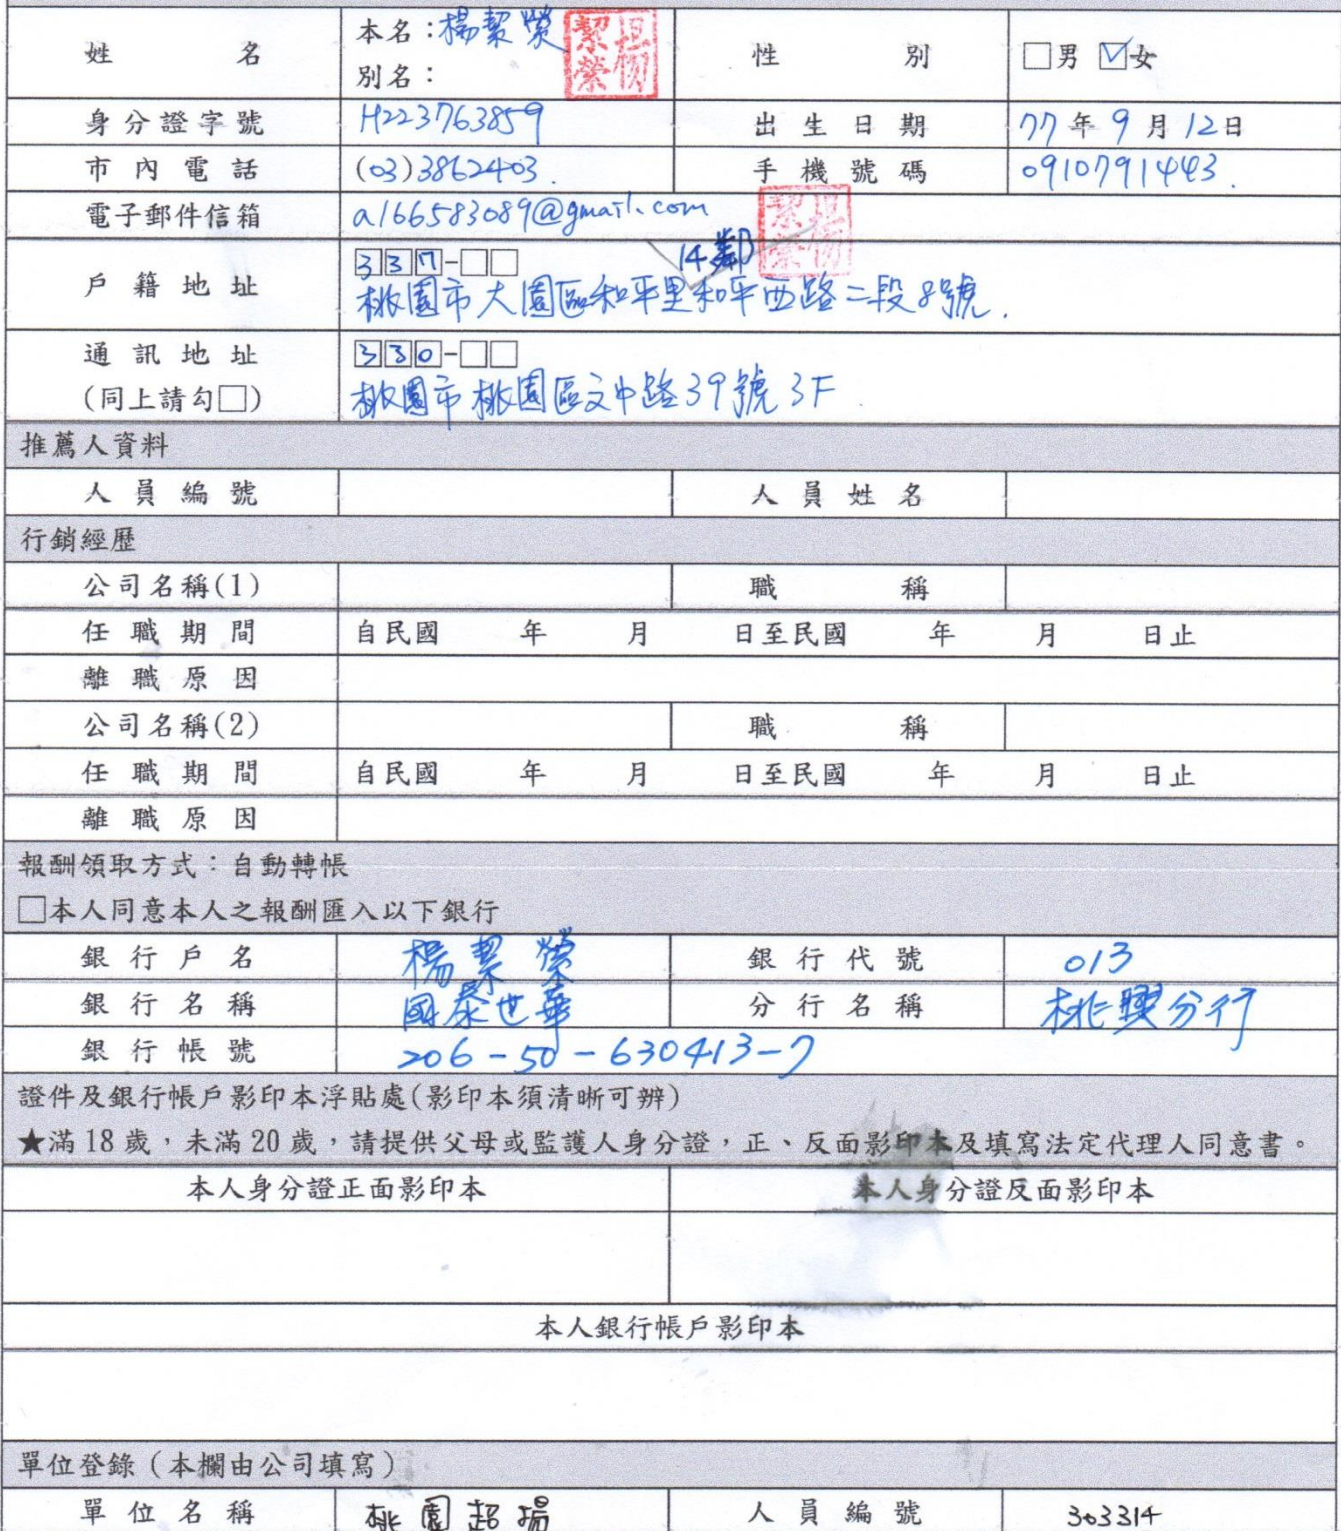 姓名 本名：楊絜縈 楊絜縈 性別 □男 ☑女
別名：
身分證字號 H223763859 出生日期 77年9月12日
市內電話 (03)3862403. 手機號碼 0910791443.
電子郵件信箱 a166583089@gmail.com
楊絜縈
戶籍地址 337-□□ 14鄰
桃園市大園區和平里和平西路二段8號.
通訊地址 330-□□
(同上請勾□) 桃園市桃園區文中路39號3F.
推薦人資料
人員編號 人員姓名
行銷經歷
公司名稱(1) 職稱
任職期間 自民國 年 月 日至民國 年 月 日止
離職原因
公司名稱(2) 職稱
任職期間 自民國 年 月 日至民國 年 月 日止
離職原因
報酬領取方式：自動轉帳
□本人同意本人之報酬匯入以下銀行
銀行戶名 楊絜縈 銀行代號 013
銀行名稱 國泰世華 分行名稱 桃興分行
銀行帳號 206-50-630413-7
證件及銀行帳戶影印本浮貼處(影印本須清晰可辨)
★滿18歲，未滿20歲，請提供父母或監護人身分證，正、反面影印本及填寫法定代理人同意書。
本人身分證正面影印本 本人身分證反面影印本
本人銀行帳戶影印本
單位登錄（本欄由公司填寫）
單位名稱 桃園超揚 人員編號 303314